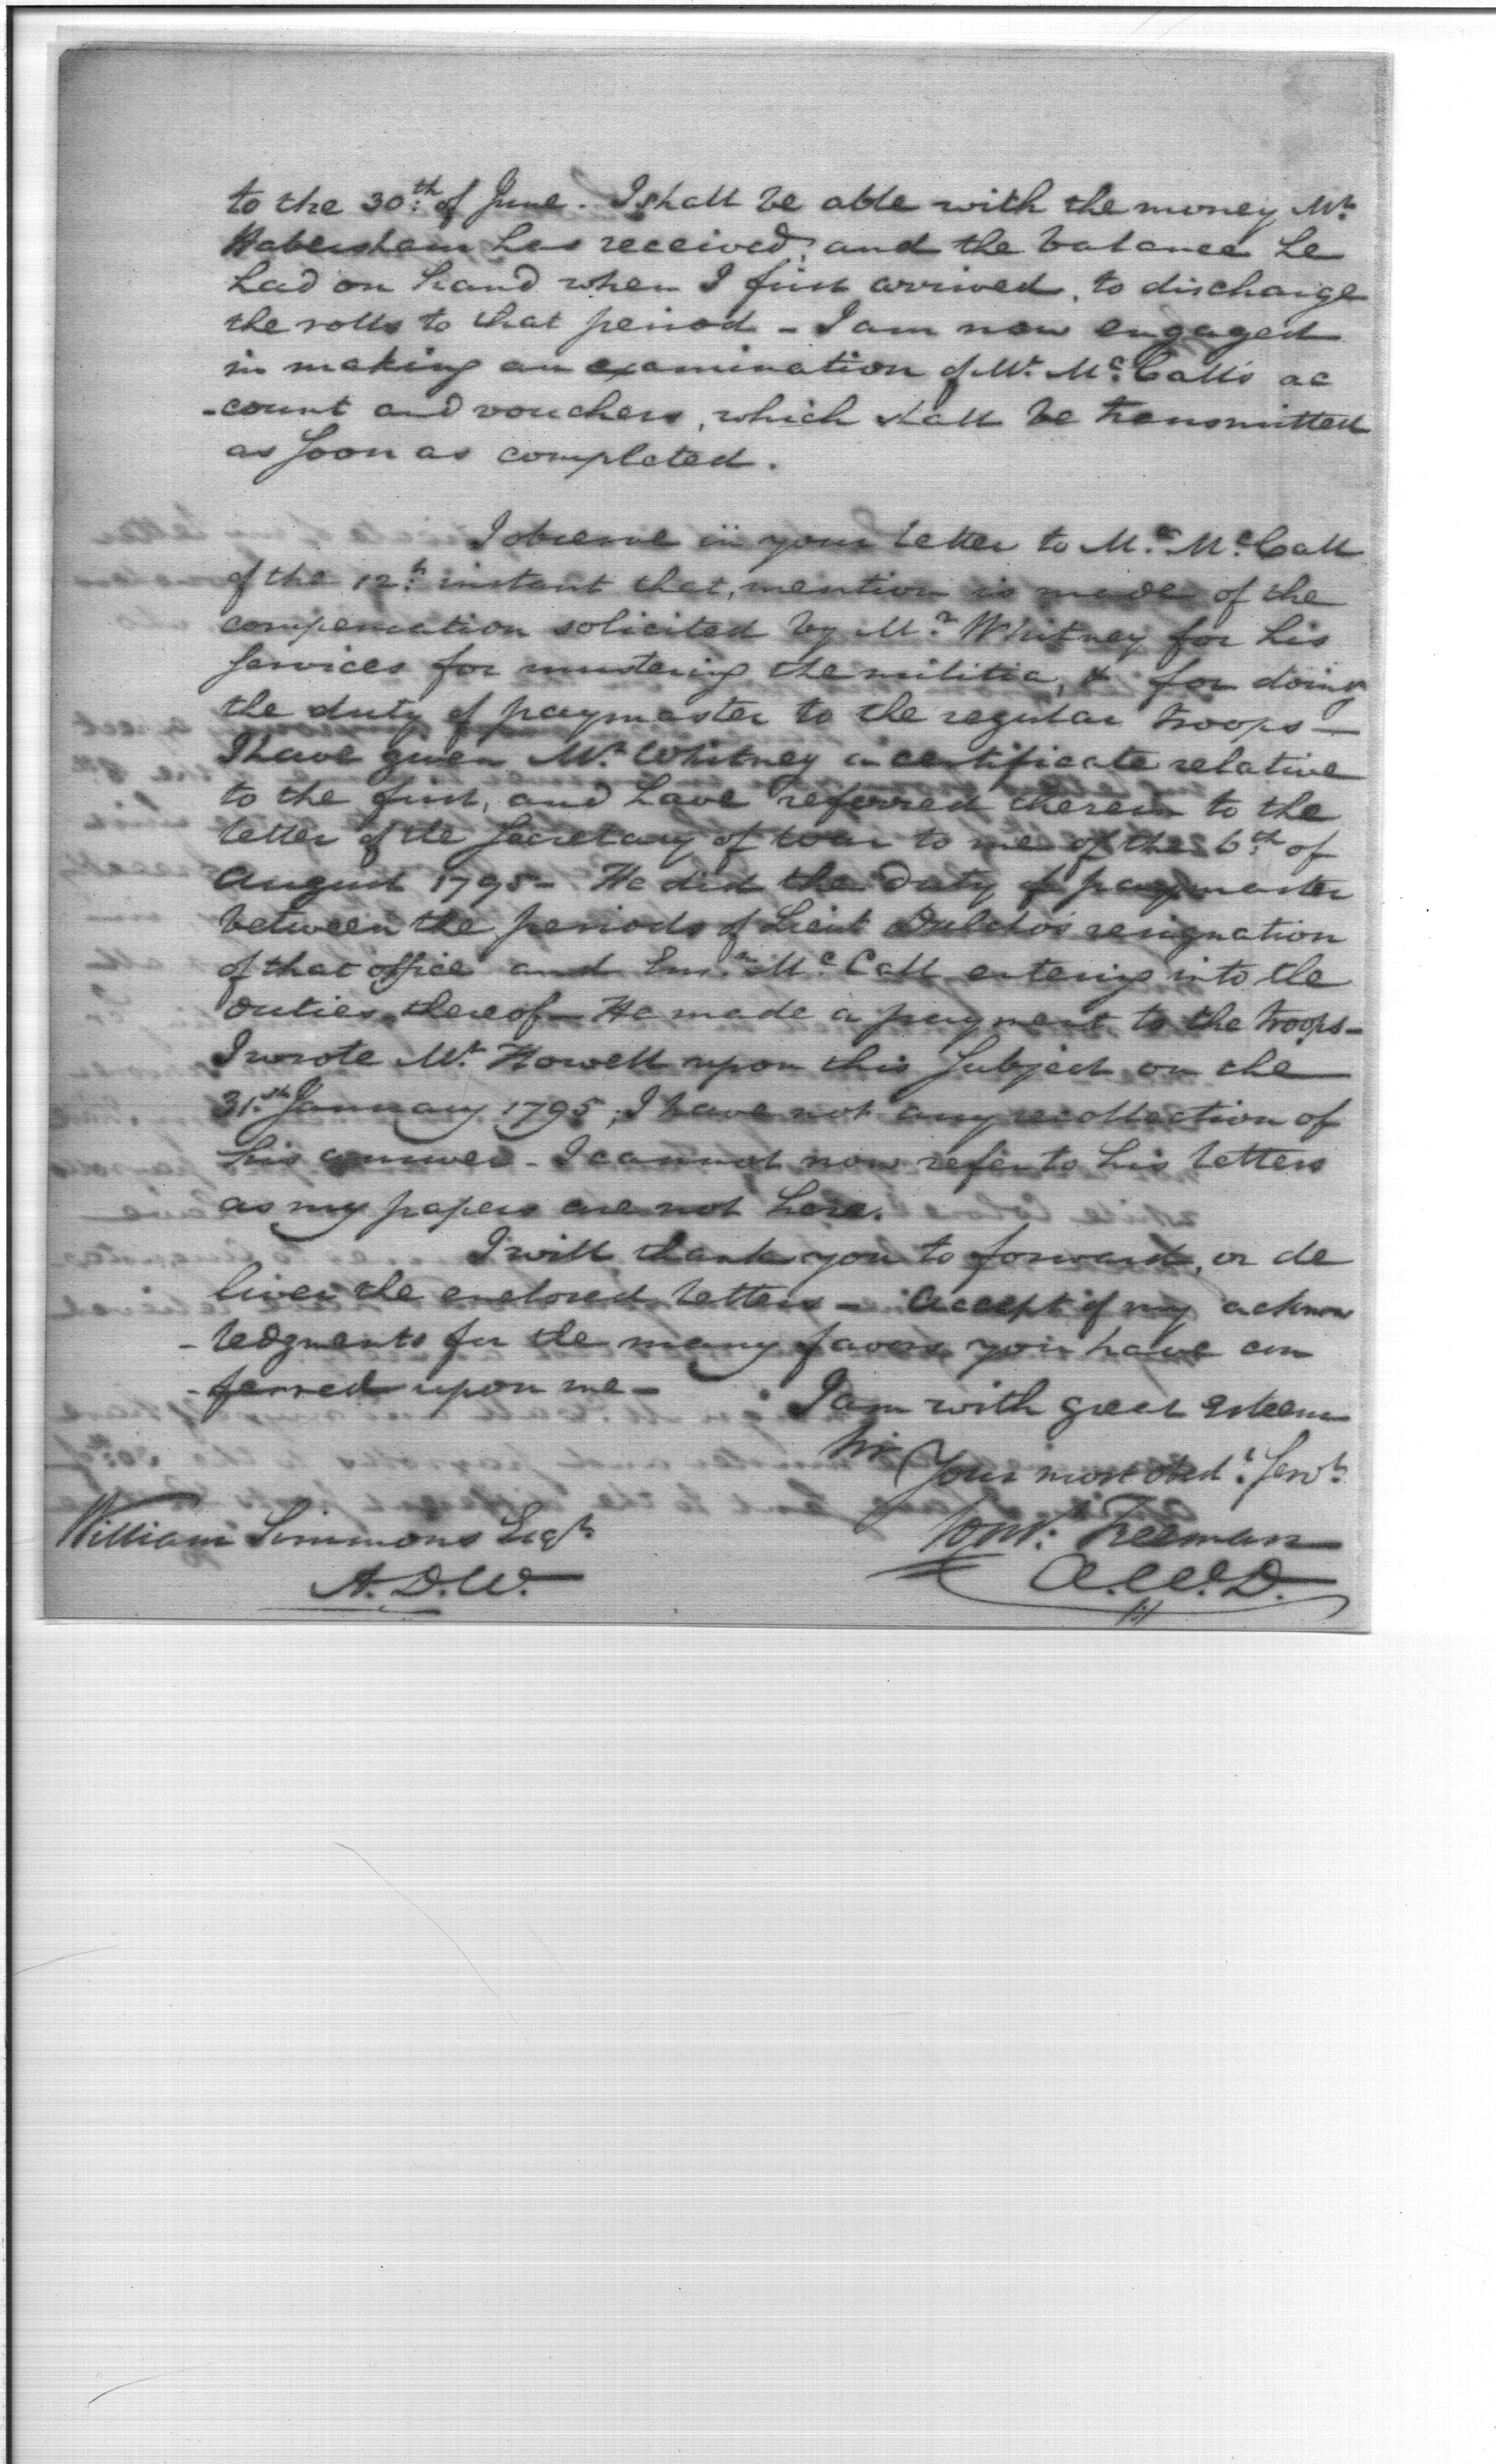 to the 30th of June. I shall be able with the money Mr.
Habersham has received, and the balance he
had on hand when I first arrived, to discharge
the rolls to that period - I am now engaged
in making an examination of Mr. McCall's ac
-count and vouchers, which shall be transmitted
as soon as completed.
I observe in your letter to Mr. McCall
of the 12th instant that, mention is made of the
compensation solicited by Mr. Whitney for his
services for mustering the militia, & for doing
the duty of paymaster to the regular troops -
I have given Mr. Whitney a certificate relative
to the first, and have referred therein to the
letter of the Secretary of War to me of the 6th of
August 1795 - He did the duty of paymaster
between the periods of Lieut Dalcho's resignation
of that office and Ens.n McCall entering into the
duties thereof - He made a payment to the troops -
I wrote Mr. Howell upon this subject on the
31st January 1795, I have not any recollection of
his answer - I cannot now refer to his letters
as my papers are not here.
I will thank you to forward, or de
liver the enclosed letters - accept of my acknow
-ledgments for the many favors you have con
-ferred upon me -
I am with great esteem
Sir
Your most obedt. Servt.
Const. Freeman
A.W.D.
William Simmons Esqr.
A.D.W.